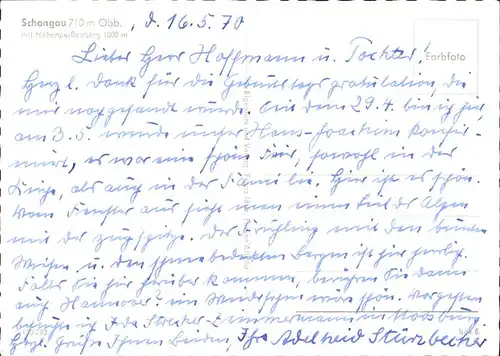 Schongau 710 m Obb.
mit Hohenpeißenberg 1000 m
, d. 16.5.70
Farbfoto
Lieber Herr Hoffmann u. Tochter!
Herzl. Dank für die Geburtstagsgratulation, die
mir nachgesandt wurde. Seit dem 29.4. bin ich hier,
am 3.5. wurde unser Hans-Joachim konfir-
miert, es war eine schöne Feier, sowohl in der
Kirche, als auch in der Familie. Hier ist es schön.
Vom Fenster aus sieht man einen Teil der Alpen
mit der Zugspitze. Der Frühling mit den bunten
Wiesen u. den schneebedeckten Bergen ist hier herrlich.
Falls Sie hier herüber kommen, berühren Sie dann
auch Hannover? ein Wiedersehen wäre schön. Vorgestern
besuchte ich Frda Strecker-Zimmermann in Moosburg.
Herzl. Grüße Ihnen Beiden, Ihre Adelheid Stürzbecher